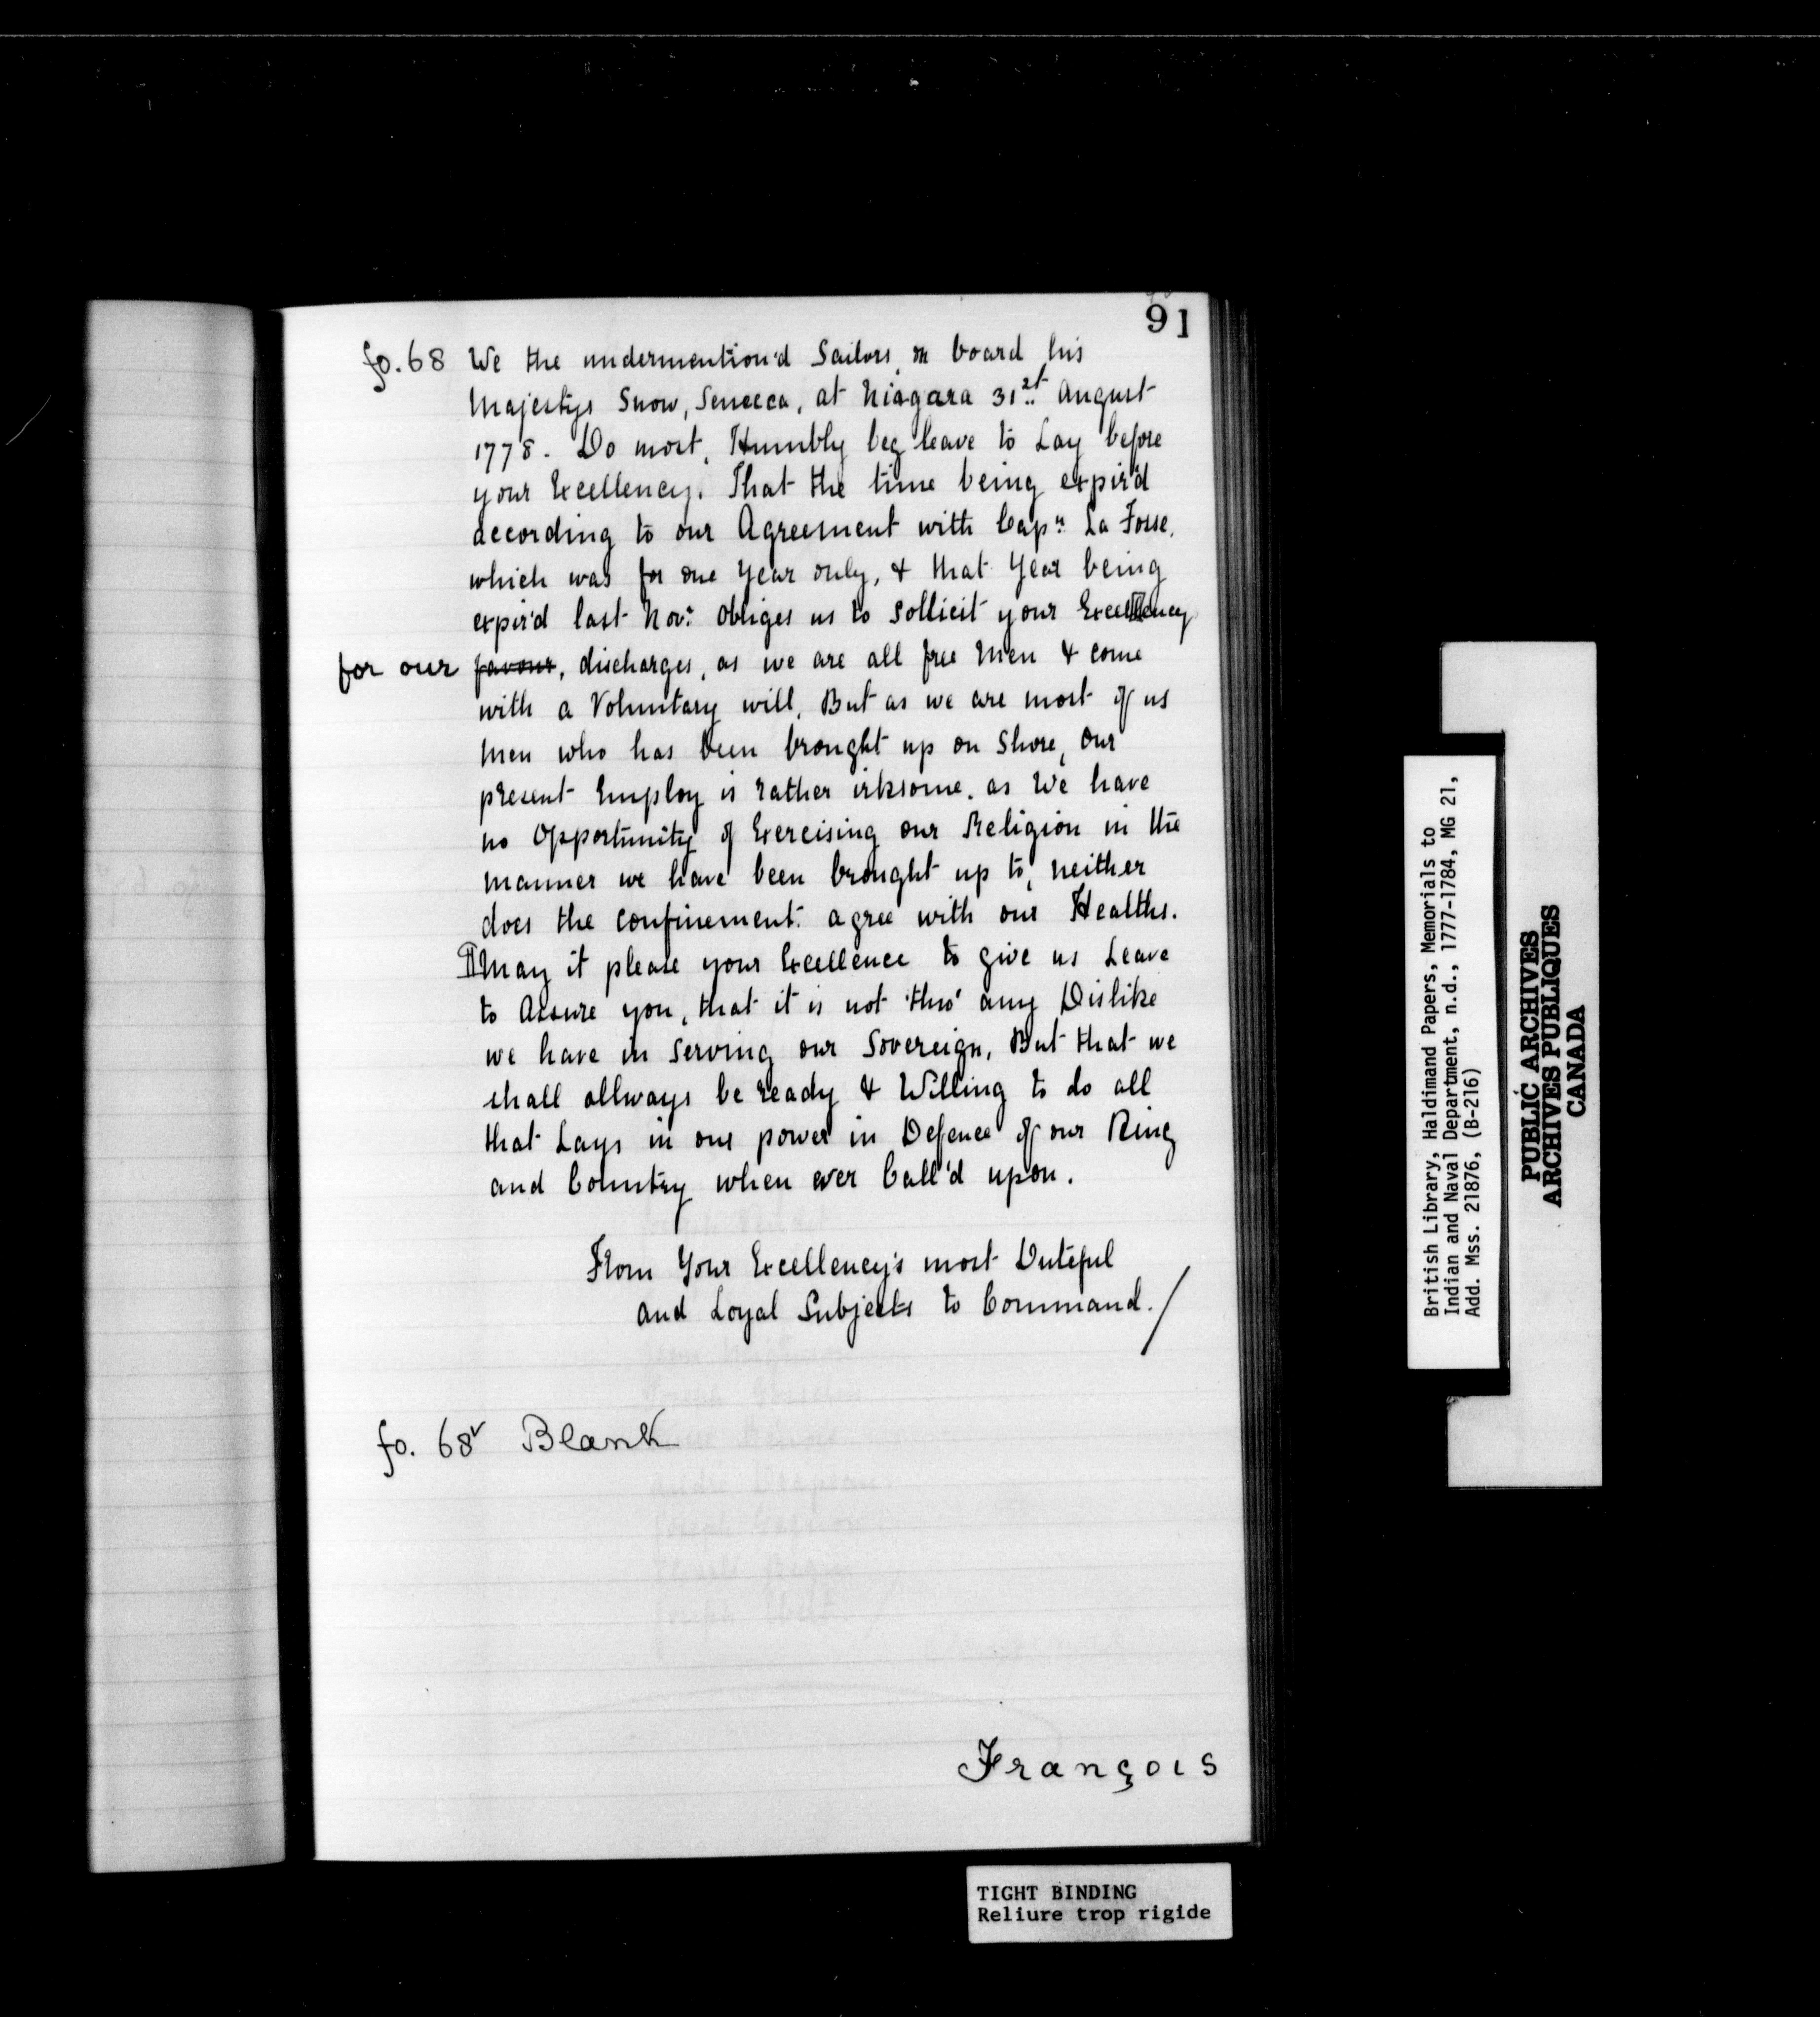 91
fo. 68 We the undermention'd Sailors, on board his
Majestys Snow, Senecca, at Niagara 31st August
1778. Do most, Humbly beg leave to Lay before
your Excellency. That the time being expir'd
according to our Agreement with Capn. La Fosse,
which was for one Year only, & that Year being
expir'd last Novr. Obliges us to Sollicit your Excellency
for our favour, discharges, as we are all free Men & come
with a Voluntary will, But as we are most of us
Men who has been brought up on Shore, Our
present Employ is rather irksome. as We have
no Opportunity of Exercising our Religion in the
manner we have been brought up to, neither
does the confinement agree with our Healths.
May it please your Excellence to give us Leave
to Assure you, that it is not thro' any Dislike
we have in Serving our Sovereign, But that we
shall allways be ready & Willing to do all
that Lays in our power in Defence of our King
and Country when ever Call'd upon.
From Your Excellency's most Duteful
and Loyal Subjects to Command./
fo. 68v Blank
François
TIGHT BINDING
Reliure trop rigide
British Library, Haldimand Papers, Memorials to
Indian and Naval Department, n.d., 1777-1784, MG 21,
Add. Mss. 21876, (B-216)
PUBLIC ARCHIVES
ARCHIVES PUBLIQUES
CANADA